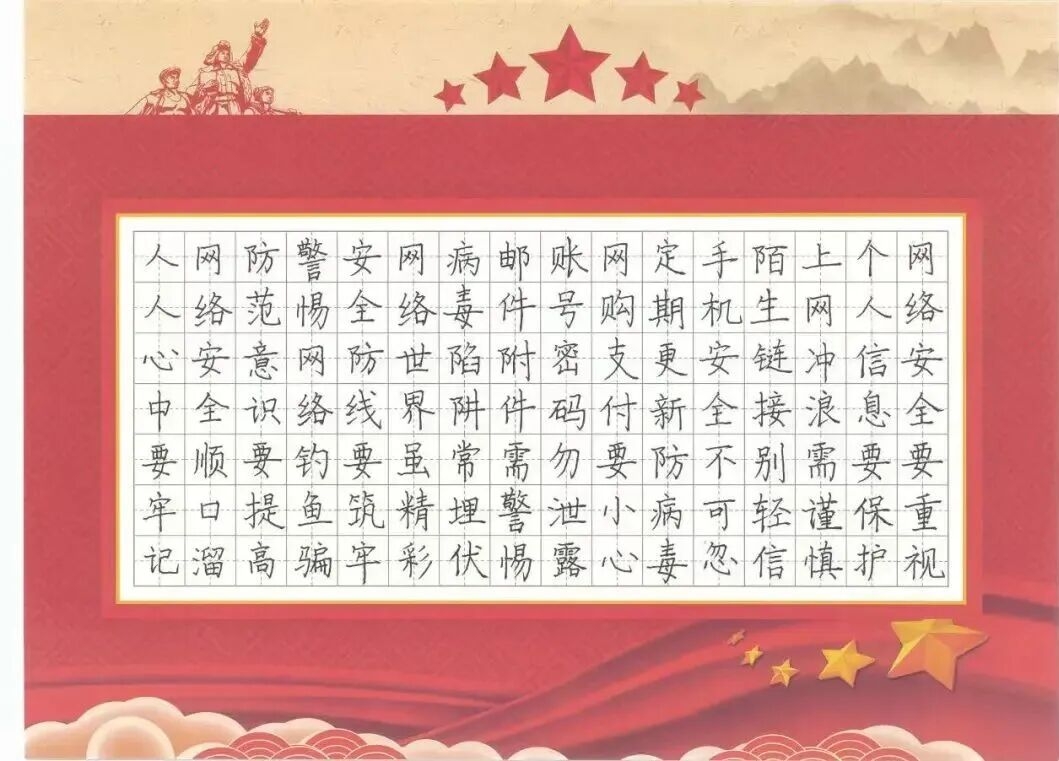 网络安全要重视
个人信息要保护
上网冲浪需谨慎
陌生链接别轻信
手机安全不可忽
定期更新防病毒
网购支付要小心
账号密码勿泄露
邮件附件需警惕
病毒陷阱常埋伏
网络世界虽精彩
安全防线要筑牢
警惕网络钓鱼骗
防范意识要提高
网络安全顺口溜
人人心中要牢记